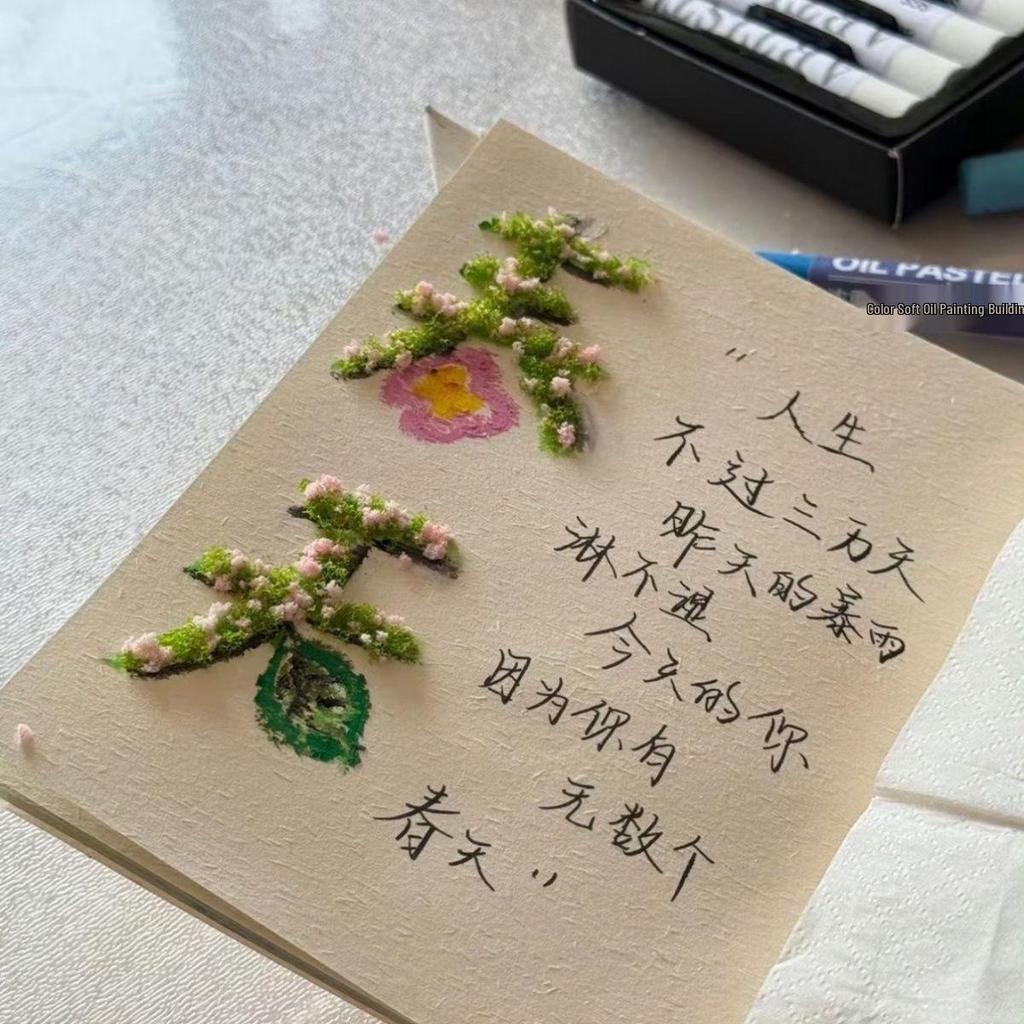 春天
"人生
不过三万天
昨天的暴雨
淋不湿
今天的你
因为你有
无数个
春天"
OIL PASTEL
Color Soft Oil Painting Buildin